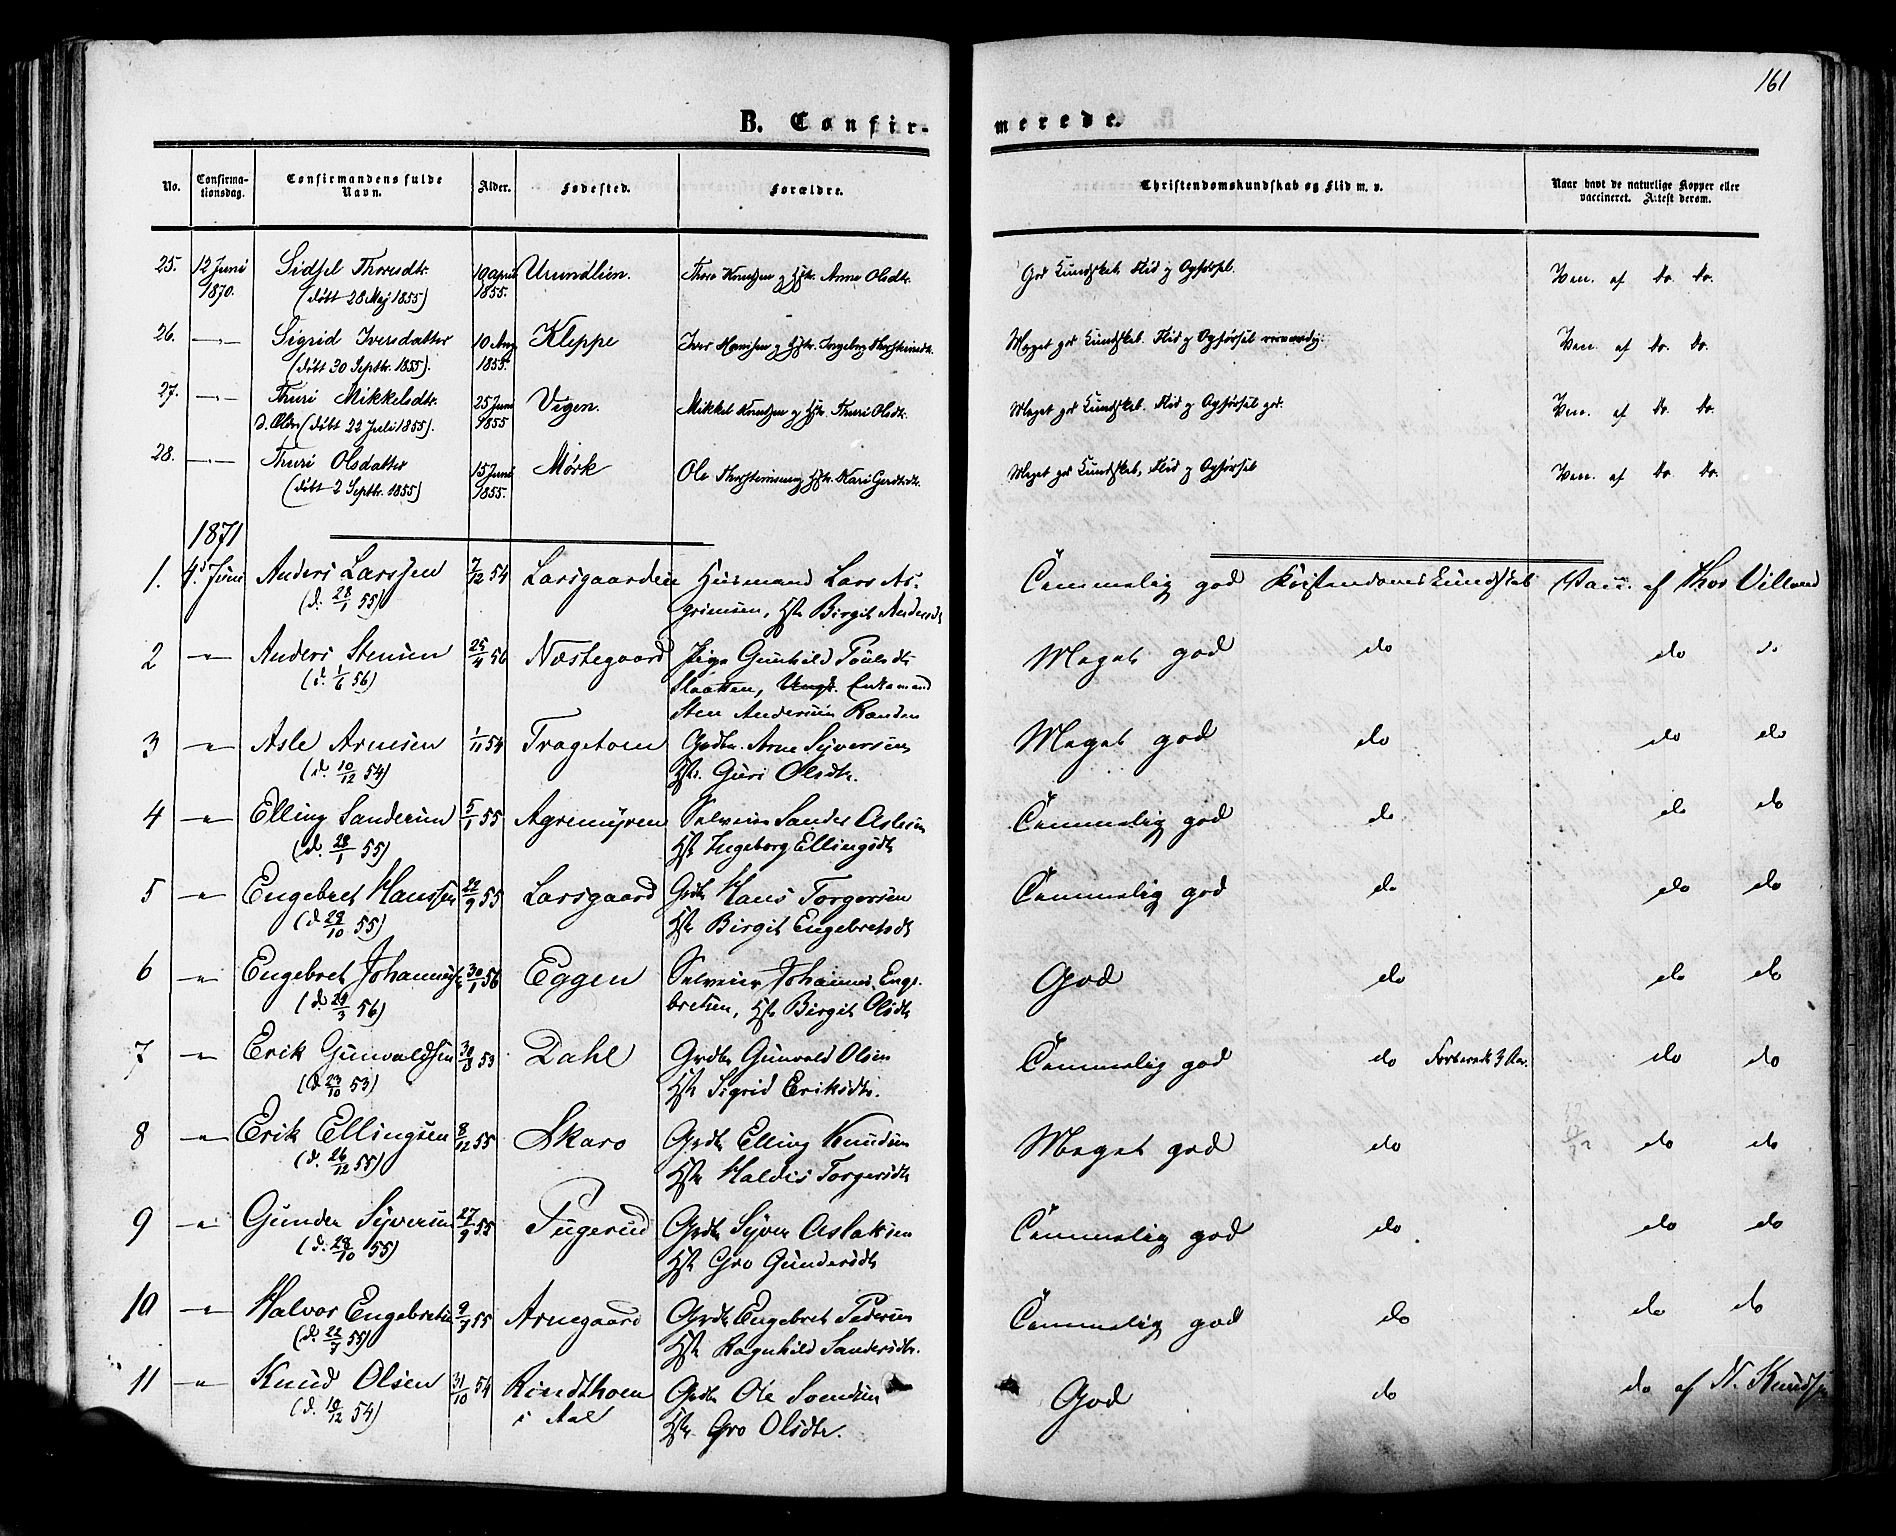 161
B. Confirmerede.
No. Confirmationsdag. Confirmandens fulde Navn. Alder. Fødested. Forældre. Christendomskundskab og Flid m. v. Naar havt de naturlige Kopper eller vaccineret. Attest derom.
25. 12 Juni Sidsel Thoresdtr. 19 April Urundlien. Thore Knudsen og Hstr. Anne Olsdtr. God Kundskab. Flid og Opførsel. Vacc. af do. do.
1870. (døbt 28 Maj 1855) 1855.
26. —"— Sigrid Iversdatter 10 Aug Kleppe Iver Hansen og Hstr. Ingeborg Thorsteinsdtr. Meget god Kundskab. Flid og Opførsel Vacc. af do. do.
(døbt 30 Septbr. 1855). 1855.
27. —"— Thuri Mikkelsdtr. 25 Juni Vigen. Mikkel Knudsen og Hstr. Thuri Olsdtr. Meget god Kundskab. Flid og Opførsel god. Vacc. af do. do.
d. Ældre (døbt 22 Juli 1855). 1855
28. —"— Thuri Olsdatter 15 Juni Mørk Ole Thorsteinsen og Hstr. Kari Gerdtsdtr. Meget god Kundskab, Flid og Opførsel Vacc. af do. do.
(døbt 2 Septbr. 1855) 1855.
1871
1. 4de Juni Anders Larssen 7/12 54 Larsgaarden Husmand Lars As- Temmelig god Kristendomskundskab Vacc. af Thor Villand
(d. 28/1 55) grimsen, Hstr Birgit Andersdt
2 —"— Anders Stensen 25/4 56 Næstegaard Pige Gunhild Paulsdtr Meget god do do do
(d. 1/6 56) Slaatten, Ungk. Enkemand
Sten Andersen Randen
3 —"— Asle Arnesen 1/11 54 Tragetom Grdbr. Arne Syversen Meget god do do do
(d. 10/12 54) Hstr. Guri Olsdtr.
4 —"— Elling Sandersen 5/1 55 Agremyren Selveier Sander Aslesen Temmelig god do do do
(d. 28/1 55) Hstr Ingeborg Ellingsdtr
5 —"— Engebret Hanssen 22/9 55 Larsgaard Grdbr Hans Torgersen Temmelig god do do do
(d 29/10 55) Hstr Birgit Engebretsdt
6 —"— Engebret Johannes 30/1 56 Eggen Selveier Johannes Enge- God do do do
(d 24/3 56) bretsen, Hstr Birgit Olsdtr
7 —"— Erik Gunvaldsen 53 Dahl Grdbr Gunvald Olsen Temmelig god do do do
(d 23/10 53) Hstr Sigrid Eriksdtr.
8 —"— Erik Ellingsen 8/12 55 Skaro Grdbr Elling Knudsen Meget god do do do
(d. 26/12 55) Hstr Haldis Torgersdtr
9 —"— Gunder Syversen 27/9 55 Tugerud Grdbr Syver Aslaksen Temmelig god do do do
(d. 28/10 55) Hstr Gro Gundersdtr
10 —"— Halvor Engebretsen 55 Arnegaard Grdbr Engebret Pedersen Temmelig god do do do
(d. 22/7 55) Hstr Ragnhild Sandersdtr.
11 —"— Knud Olsen 31/10 54 Rindthoen Grdbr Ole Svendsen God do do af N. Knudsen
(d. 10/12 54) i Aal Hstr. Gro Olsdtr.